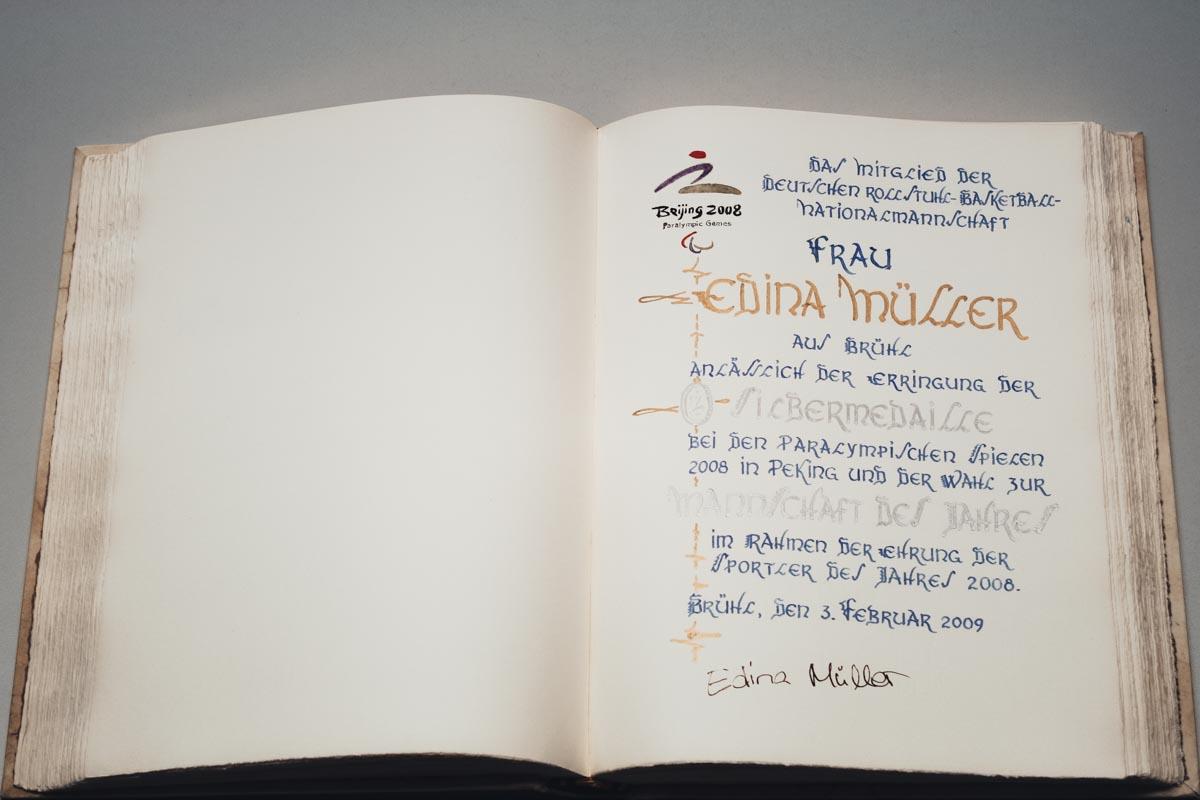 Beijing 2008
Paralympic Games
DAS MITGLIED DER
DEUTSCHEN ROLLSTUHL-BASKETBALL-
NATIONALMANNSCHAFT
FRAU
EDINA MÜLLER
AUS BRÜHL
ANLÄSSLICH DER ERRINGUNG DER
SILBERMEDAILLE
BEI DEN PARALYMPISCHEN SPIELEN
2008 IN PEKING UND DER WAHL ZUR
MANNSCHAFT DES JAHRES
IM RAHMEN DER EHRUNG DER
SPORTLER DES JAHRES 2008.
BRÜHL, DEN 3. FEBRUAR 2009
Edina Müller